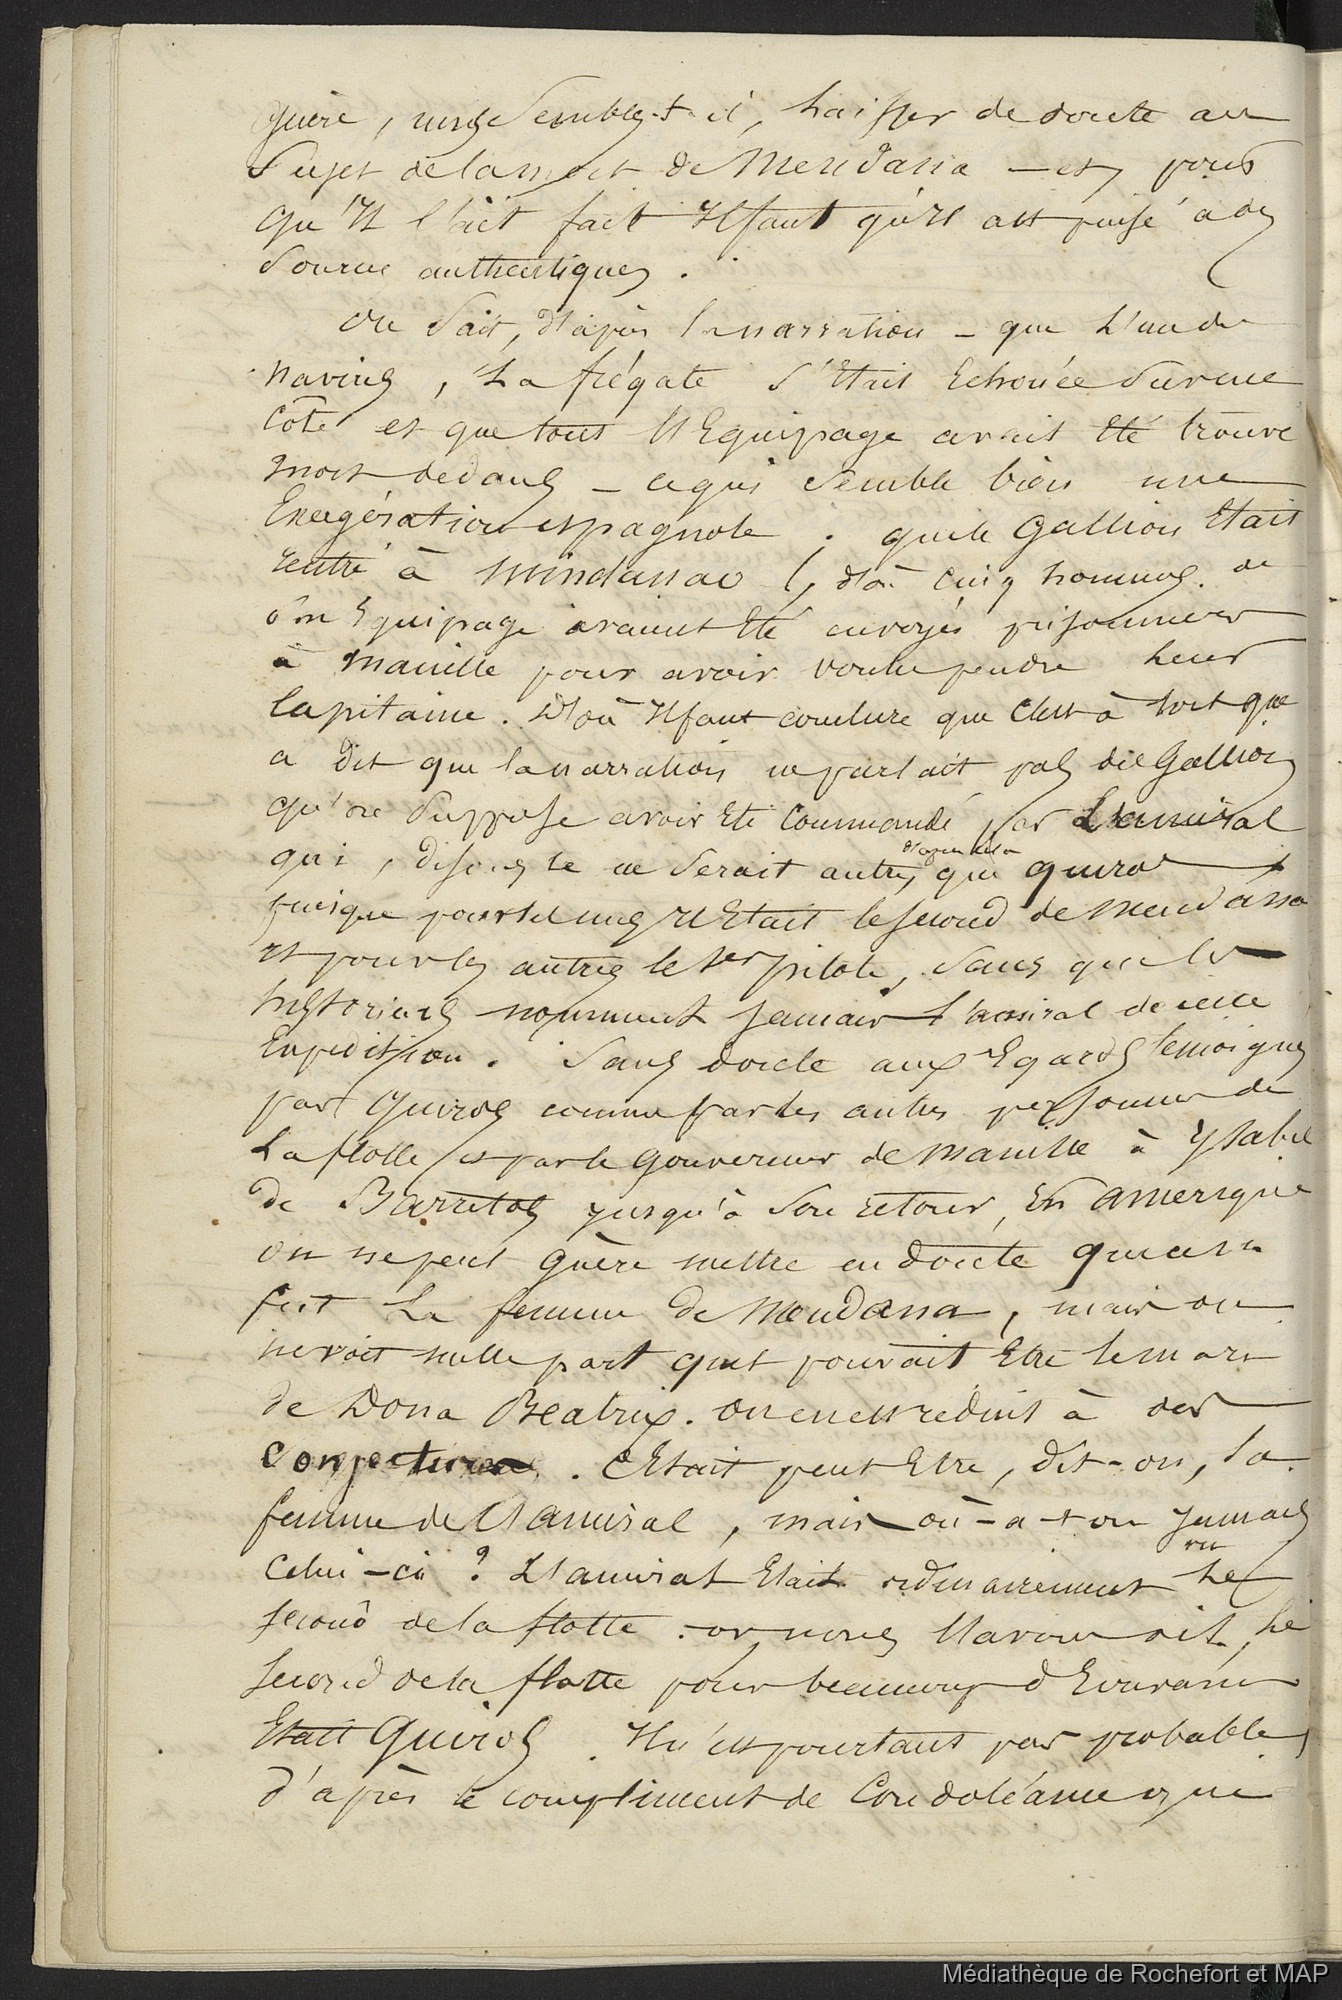 guère, nous semble-t-il, laisser de doute au
sujet de la mort de Mendana – et, pour
qu'Il l'ait fait Il faut qu'Il ait puisé à des
sources authentiques.
On sait, d'après la narration – que L'un des
navires, La frégate s'Etait Echouée sur une
côte et que tous l'Equipage avait Eté trouvé
mort dedans – ce qui semble bien une
Exagération espagnole. que le Gallion Etait
rentré à Mindanao, d'où cinq hommes de
son Equipage avaient Eté envoyés prisonniers
à Manille pour avoir voulu pendre leur
Capitaine. D'où Il faut conclure que c'est à tort que
a dit que la narration ne parlait pas du Gallion
qu'on suppose avoir Eté Commandé par L'amiral
qui, disons le ne serait autre, d'après cela que quiros
puisque pour les uns Il Etait le second de Mendana
et pour les autres le 1er pilote, sans que les
historiens nomment jamais l'amiral de cette
Expédition. Sans doute aux Egards témoignés
par Quiros comme par les autres personnes de
La flotte et par le gouverneur de Manille à Ysabel
de Barretos jusqu'à son retour, En Amerique
on ne peut guère mettre en doute que ce ne
fut La femme de Mendana, mais on
ne voit nulle part quel pouvait Etre le mari
de Dona Beatrix. on en est reduit à des
conjectures. C'Etait peut Etre, dit-on, la
femme de l'Amiral, mais où-a-t-on jamais
vu
celui-ci ? L'amiral Etait ordinairement Le
second de la flotte. or, nous l'avons dit, le
second de la flotte pour beaucoup d'Ecrivains
Etait Quiros. Il n'est pourtant pas probable,
d'après le compliment de Condoléance que
Médiathèque de Rochefort et MAP